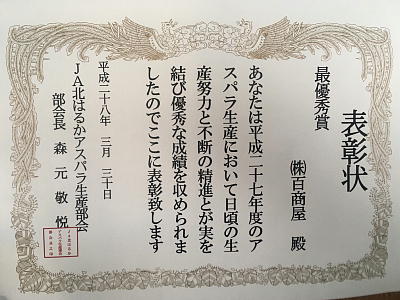 表彰状
最優秀賞
㈱百商屋 殿
あなたは平成二十七年度のア
スパラ生産において日頃の生
産努力と不断の精進とが実を
結び優秀な成績を収められま
したのでここに表彰致します
平成二十八年 三月 三十日
JA北はるかアスパラ生産部会
部会長 森元敬悦